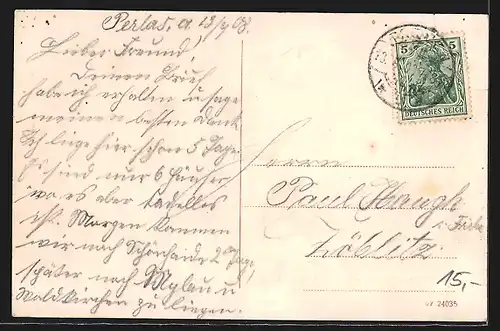 Perlas, d. 13/9 08.
Lieber Freund!
Deinen Brief
habe ich erhalten u. sage
meinen besten Dank
Ich liege hier schon 5 Tage
Es sind nur 6 Häuser
wo es aber tadellos
ist. Morgen kommen
wir nach Schönheide 2 Tage
später nach Mylau u
Waldkirchen zu liegen.
5 5
DEUTSCHES REICH
Herrn
Paul Haugk
Zöblitz
15,-
24035